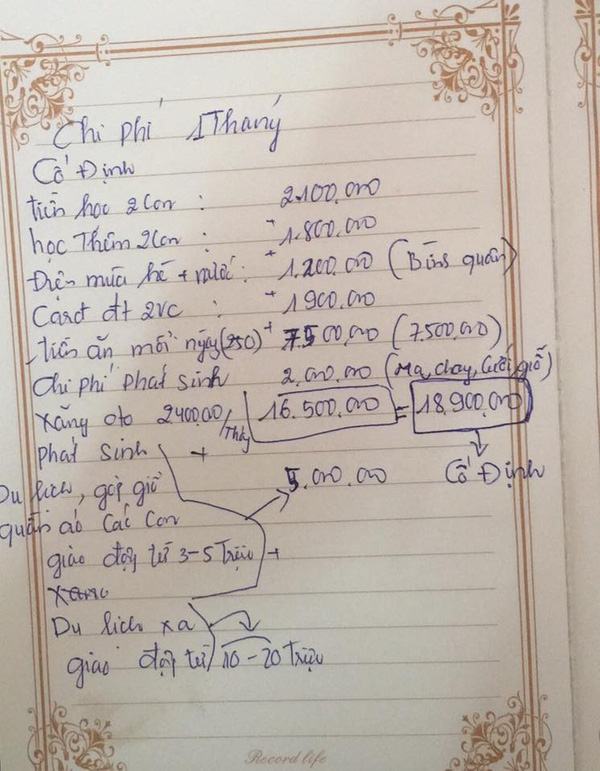 Chi phí 1 Tháng
Cố Định
tiền học 2 con : 2.100.000
học Thêm 2 con : + 1.800.000
Điện mùa hè + nước : + 1.200.000 (Bình quân)
Card đt 2vc : + 1900.000
tiền ăn mỗi ngày (250) + 7500.000 (7.500.000)
Chi phí Phát sinh 2.000.000 (Ma, chay, cưới, giỗ)
Xăng oto 2400.00/Thág 16.500.000 = 18.900.000
phát sinh +
Du lịch, góp giỗ 5.000.000 Cố Định
quần áo các con
giao động từ 3-5 Triệu +
Du lịch xa
giao động từ 10-20 Triệu
Record life